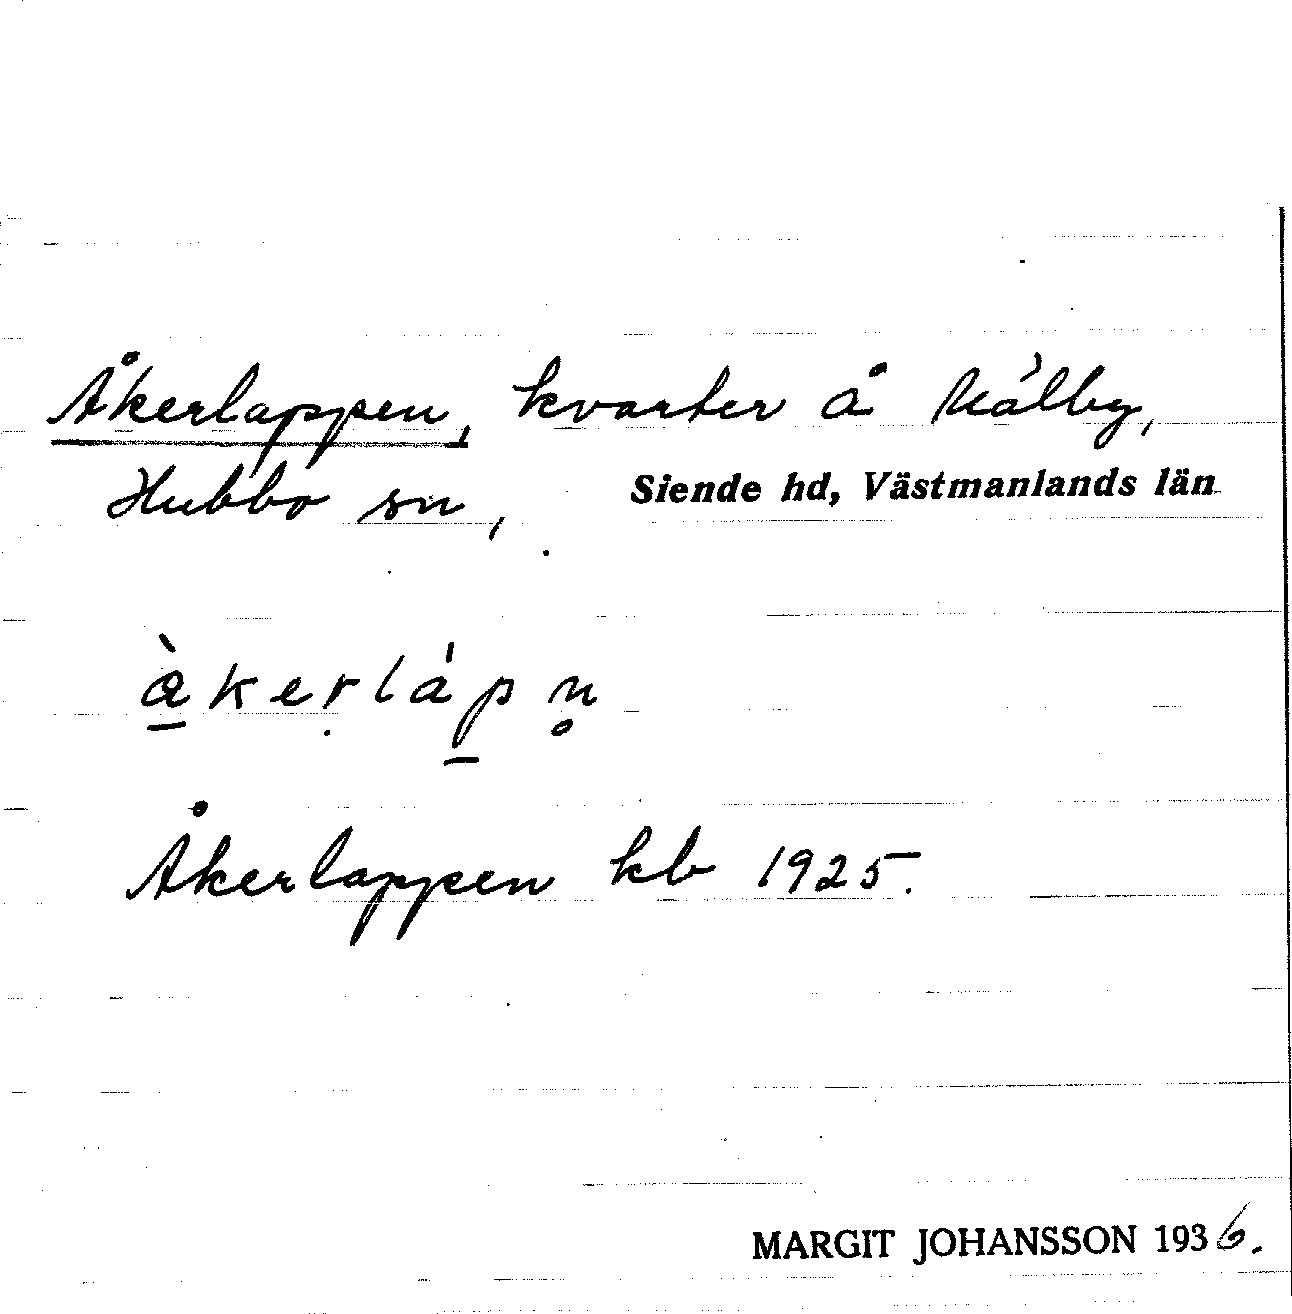 Åkerlappen, kvarter å Målby,
Hubbo sn, Siende hd, Västmanlands län
àkerlápn
Åkerlappen kb 1925.
MARGIT JOHANSSON 1936.